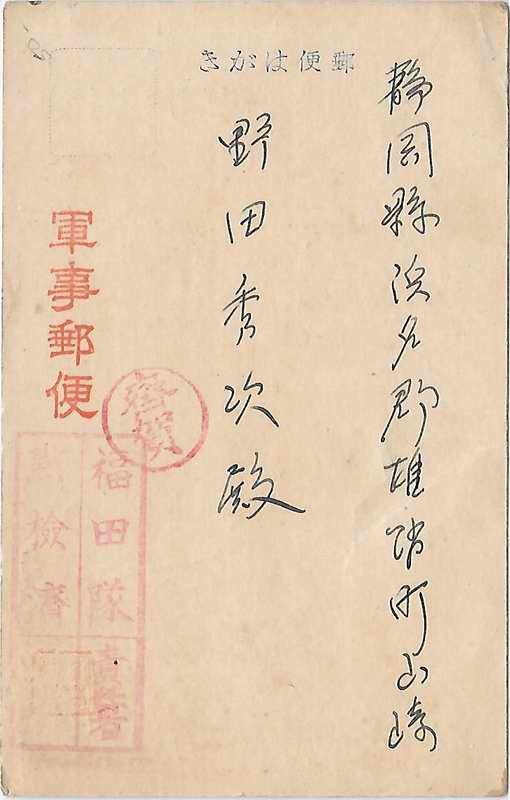 郵便はがき
静岡縣浜名郡雄踏町山崎
野田秀次殿
軍事郵便
齊賀
福田隊
檢濟
責任者